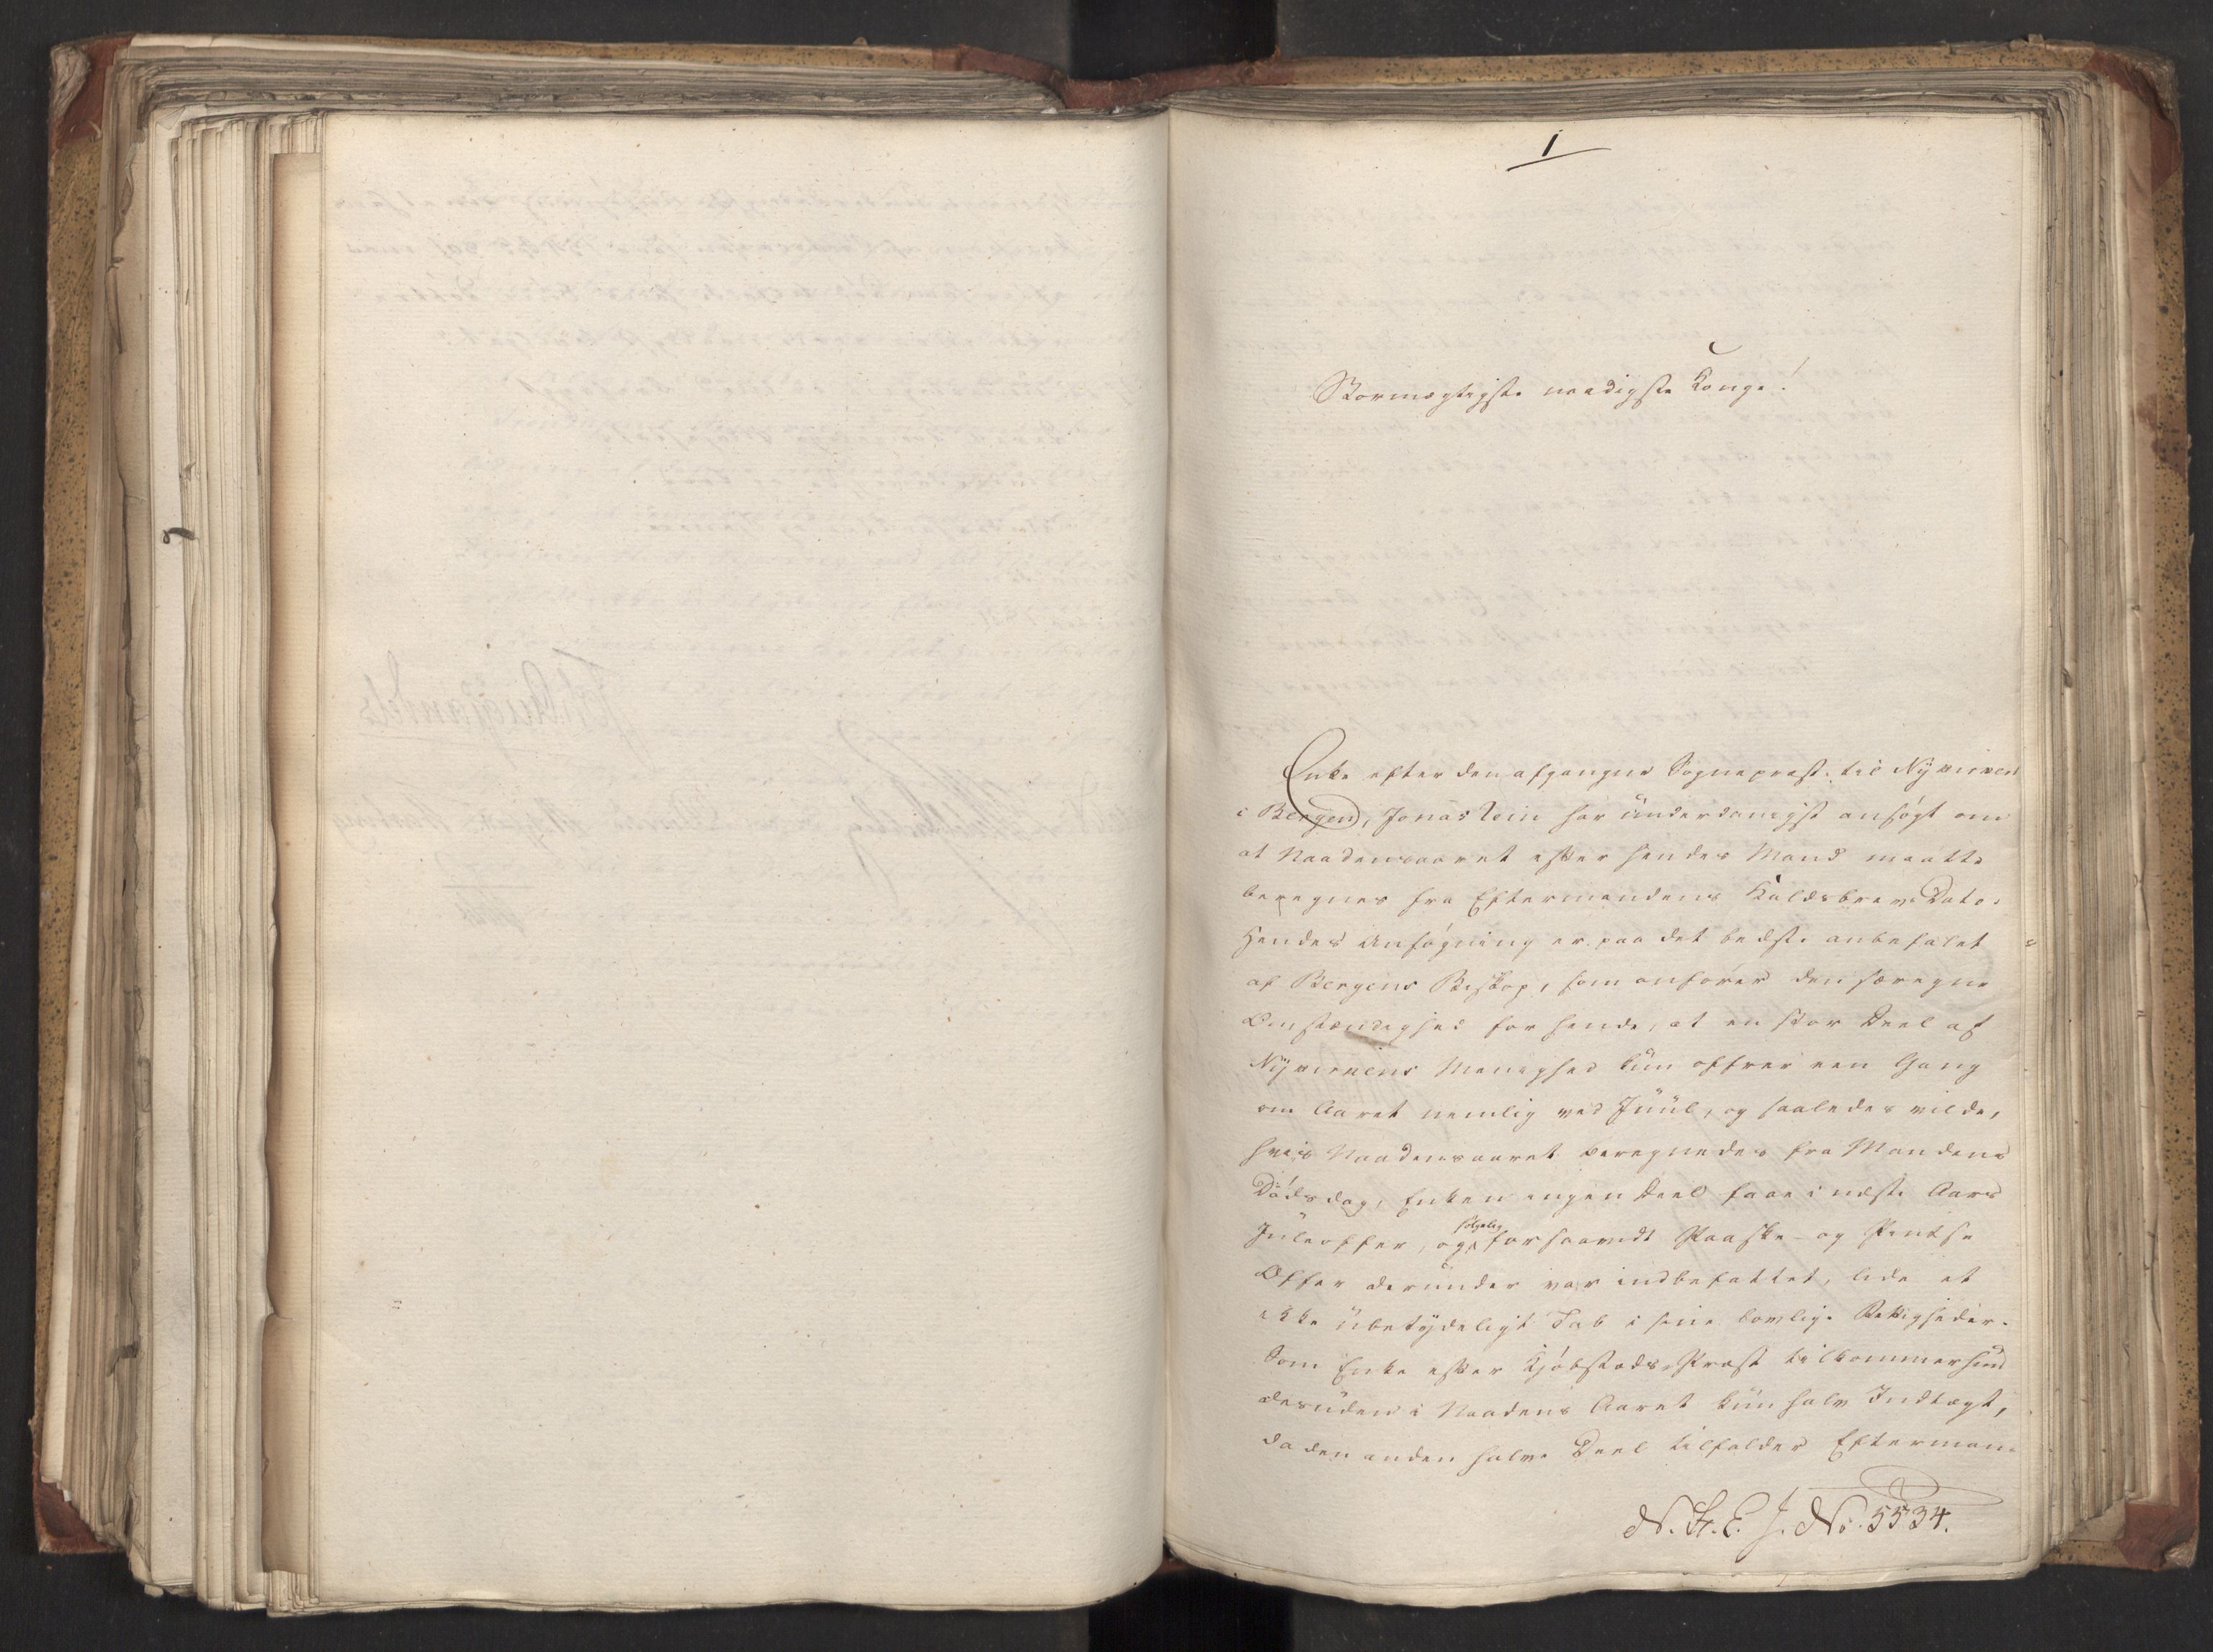 1
Stormægtigste naadigste Konge!
Enke efter den afgangne Sognepræst til Nykirken
i Bergen, Jonas Rein har underdanigst ansøgt om
at Naadensaaret efter hendes Mand maatte
beregnes fra Eftermandens Kaldsbrevs Dato.
Hendes Ansøgning er paa det bedste anbefalet
af Bergens Biskop, som anfører den særegne
Omstændighed for hende, at en stor Deel af
Nykirkens Menighed kun offrer een Gang
om Aaret nemlig ved Juul, og saaledes vilde,
hvis Naadensaaret beregnedes fra Mandens
Dødsdag, Enken ingen Deel faae i næste Aars
Juleoffer, og følgelig forsaavidt Paaske- og Pintse
Offer derunder var indbefattet, lide et
ikke ubetydeligt Tab i sine lovlige Rettigheder.
Som Enke efter Kjøbstads-Præst tilkommer hun
desuden i Naadens Aaret kun halv Indtægt,
da den anden halve Deel tilfalder Efterman-
N. R. E. J. No. 5534.